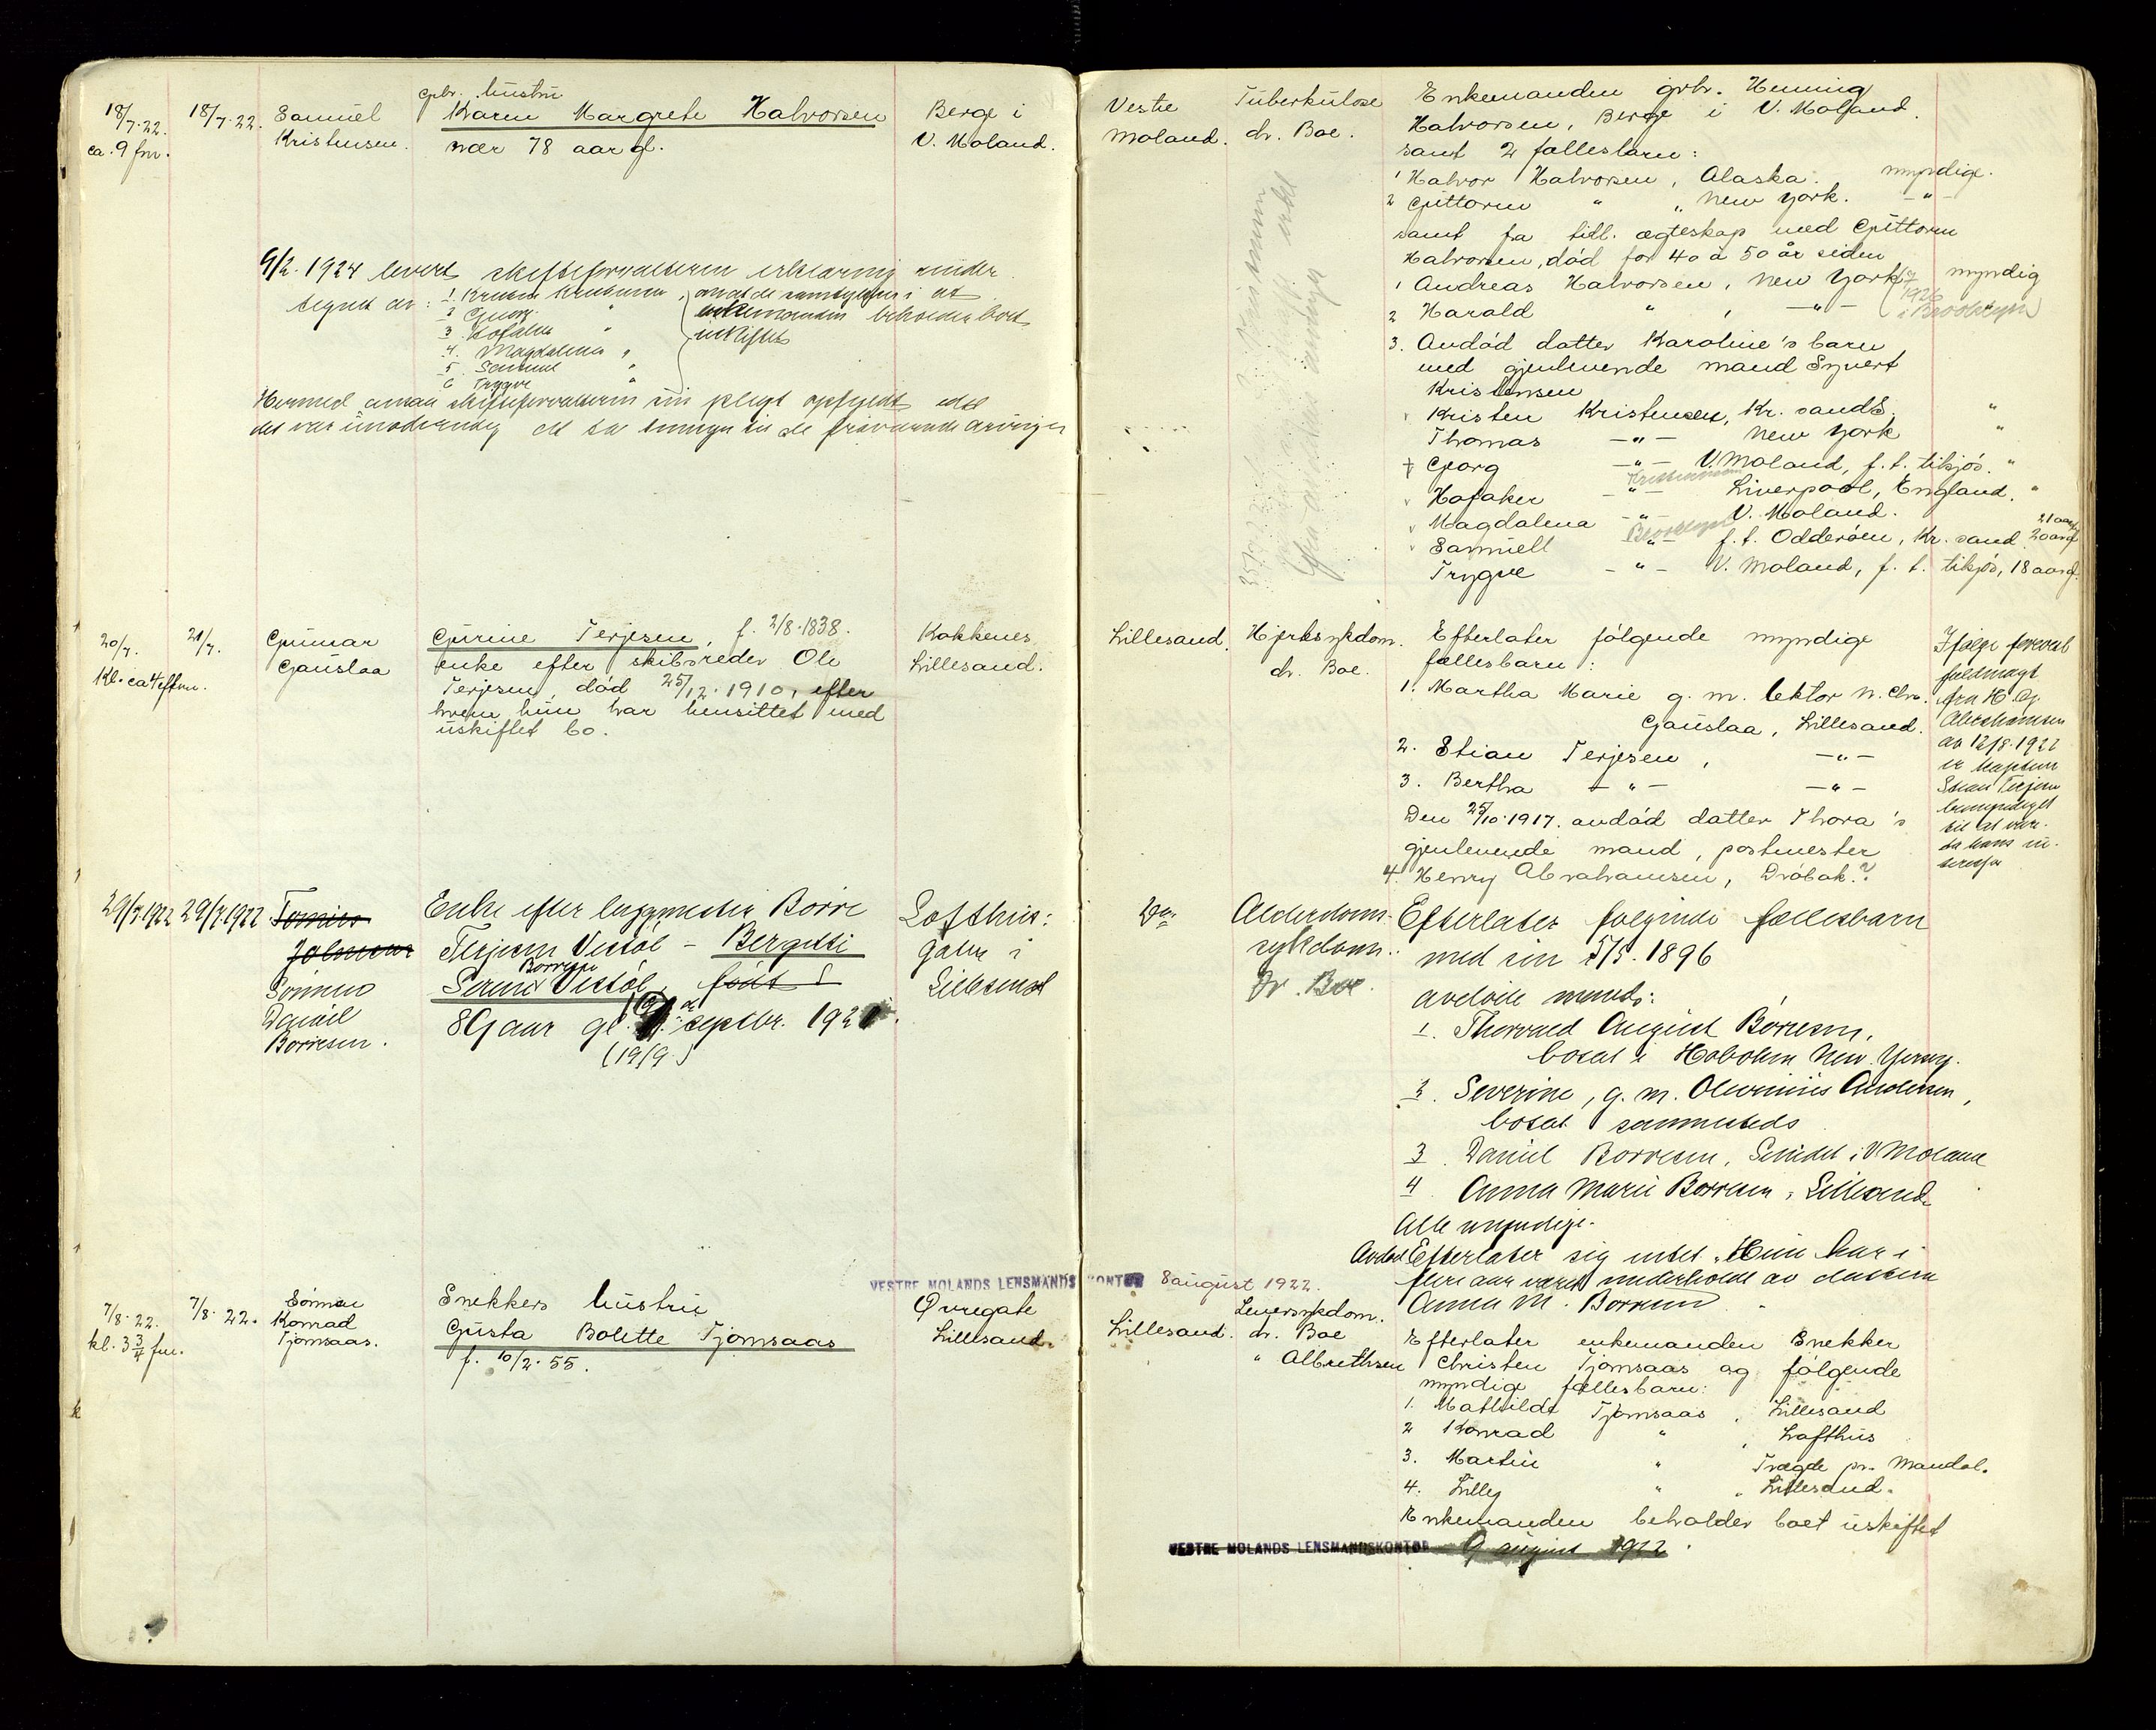 18/7.22.
ca. 9 fm.
18/7.22.
Samuel
Kristensen.
gbr. hustru
Karen Margrete Halvorsen
nær 78 aar gl.
Berge i
V. Moland.
9/2. 1924 levert skifteforvalteren erklæring under
tegnet av:
1. Kristen Kristensen
2 Georg "
3 Hofaker "
4. Magdalena "
5 Samuel "
6 Trygve "
at
enkemanden beholder boet
uskiftet
Hermed ansaa skifteforvalteren sin pligt opfyldt, idet
det var unødvendig at
20/7.
Kl. ca 4 eftm.
21/7.
Gunnar
Gauslaa
Gurine Terjesen, f. 2/8.1838.
enke efter skibsreder Ole
Terjesen, død 25/12.1910, efter
hvem hun har hensittet med
uskiftet bo.
Kokkenes
Lillesand.
29/7.1922
29/7.1922.
Daniel
Børresen.
Enke efter Børre
Terjesen Vestøl - Bergitte
Børresen
Vestøl, født
89 aar gl. septbr. 1921.
(19/9.)
Lofthus:
gaten i
Lillesand
VESTRE MOLANDS LENSMANDSKONTOR 8 august 1922.
7/8.22.
kl. 3 3/4 fm.
7/8.22.
Sønnen
Konrad
Tjomsaas.
Snekkers hustru
Gusta Bolette Tjomsaas
f. 10/2.55.
Øvregate
Lillesand.
Vestre
Moland.
Tuberkulose
dr. Boe.
Enkemanden grbr. Henning
Halvorsen, Berge i V. Moland.
samt 2 fællesbarn:
1 Halvor Halvorsen, Alaska. myndige.
2 Guttorm " " New York. - " -
samt fra tidl. ægteskap med Guttorm
Halvorsen, død for 40 à 50 år siden
1 Andreas Halvorsen, New York myndig
2 Harald " , - " - i Brooklyn)
3. Avdød datter Karoline's barn
med gjenlevende mand Syvert
Kristensen
Kristen Kristensen, Kr. sand S. "
Thomas - " - New York "
+ Georg - " - V. Moland, f. t. tilsjøs. "
Hofaker - " - Liverpool, England. "
Magdalena - " - V. Moland. 21 aar gl
Samuell Brooklyn " f. t. Odderøen, Kr. sand 20 aar gl
Trygve - " - V. Moland, f. t. tilsjøs, 18 aar gl.
Lillesand.
Hjertesykdom.
dr. Boe.
Efterlater følgende myndige
fællesbarn:
1. Martha Marie g. m. lektor N. Chr.
Gauslaa, Lillesand.
2. Stian Terjesen, - " -
3. Bertha - " - - " -
Den 25/10.1917. avdød datter Thora's
gjenlevende mand, postmester
4. Henry Abrahamsen, Drøbak.?
Ifølge forevist
fuldmagt
fra H. O.
Abrahamsen
av 12/8.1922
er kaptein
Stian Terjesen
bemyndiget
til at vare-
ta hans in-
teresser
Do
Alderdoms-
sykdom.
Dr. Boe.
Efterlater følgende fællesbarn
med sin 5/5.1896
avdøde mand:
1. Thorvald August Børresen,
bosat i Hoboken New Yersey.
2. Severine, g. m. Oluvinius Andersen,
bosat sammesteds
3. Daniel Børresen, i V Moland
4 Anna Marie Børresen, Lillesand
Alle myndige.
Avdøde Efterlater sig intet. Hun har i
flere aar været underholdt av datteren
Anna M. Børresen
Lillesand.
Leversykdom.
dr. Boe
" Albrethsen
Efterlater enkemanden Snekker
Christen Tjomsaas og følgende
myndige fællesbarn:
1. Mathilde Tjomsaas, Lillesand
2 Konrad " , Lofthus
3. Martin " Trægde pr. Mandal.
4. Lilly " " Lillesand.
Enkemanden beholder boet uskiftet
VESTRE MOLANDS LENSMANDSKONTOR 9 august 1922